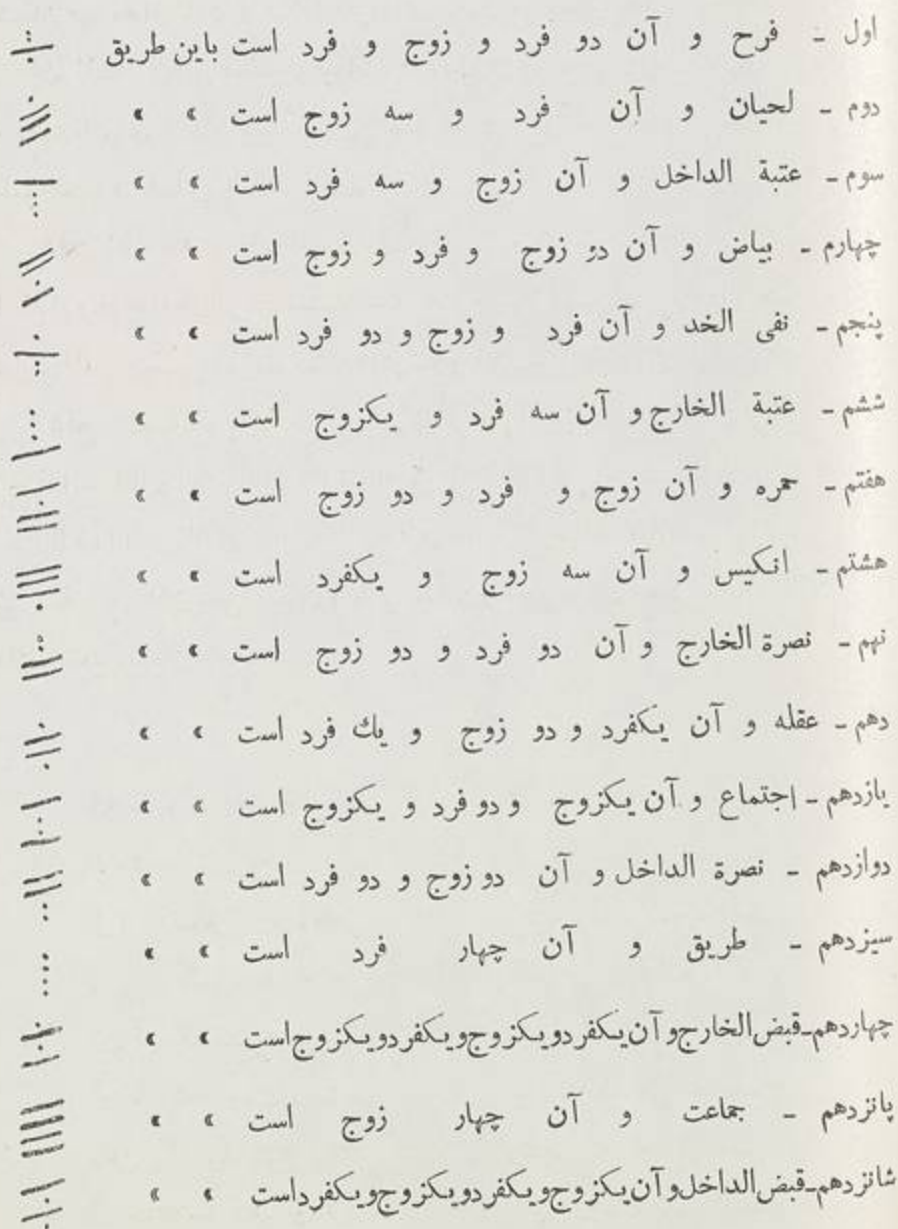 اول - فرح و آن دو فرد و زوج و فرد است باین طریق
دوم - لحیان و آن فرد و سه زوج است » »
سوم - عتبة الداخل و آن زوج و سه فرد است » »
چهارم - بیاض و آن دو زوج و فرد و زوج است » »
پنجم - نفی الخد و آن فرد و زوج و دو فرد است » »
ششم - عتبة الخارج و آن سه فرد و یکزوج است » »
هفتم - حمره و آن زوج و فرد و دو زوج است » »
هشتم - انکیس و آن سه زوج و یکفرد است » »
نهم - نصرة الخارج و آن دو فرد و دو زوج است » »
دهم - عقله و آن یکفرد و دو زوج و یك فرد است » »
یازدهم - اجتماع و آن یکزوج و دو فرد و یکزوج است » »
دوازدهم - نصرة الداخل و آن دو زوج و دو فرد است » »
سیزدهم - طریق و آن چهار فرد است » »
چهاردهم - قبض الخارج و آن یکفرد و یکزوج و یکفرد و یکزوج است » »
پانزدهم - جماعت و آن چهار زوج است » »
شانزدهم - قبض الداخل و آن یکزوج و یکفرد و یکزوج و یکفرد است » »